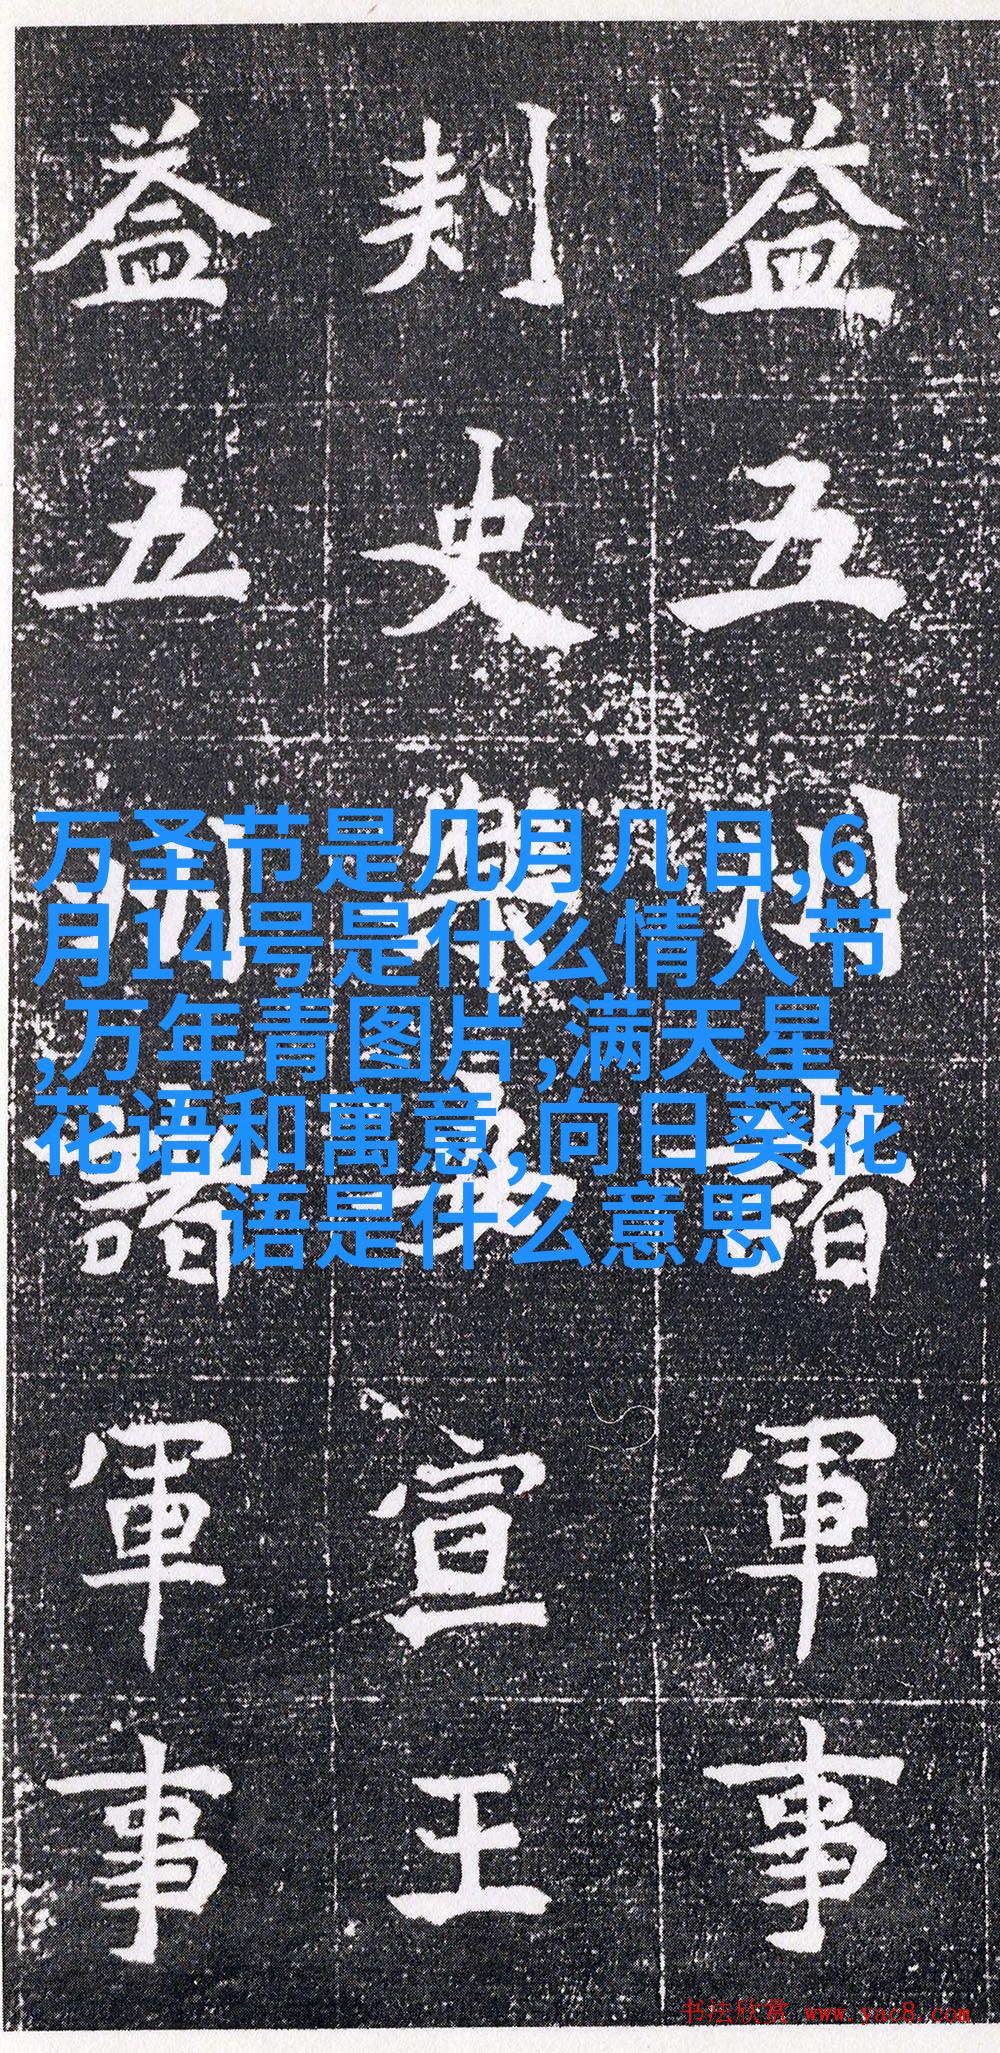 益五州諸軍事
刺史宣王
益五州諸軍事
万圣节是几月几日,6
月14号是什么情人节
,万年青图片,满天星
花语和寓意,向日葵花
语是什么意思
书法欣赏 www.yac8.com